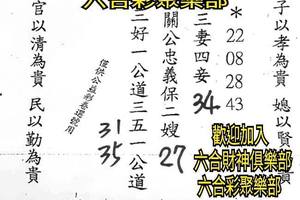 六合彩聚樂部
子以孝為貴 媳以賢
*
22
08
28
43
三妻四妾 34
關公忠義保二嫂 27
二好一公道三五一公道
僅供公益彩卷迷參用
31
35
官以清為貴 民以勤為貴
歡迎加入
六合財神俱樂部
六合彩聚樂部